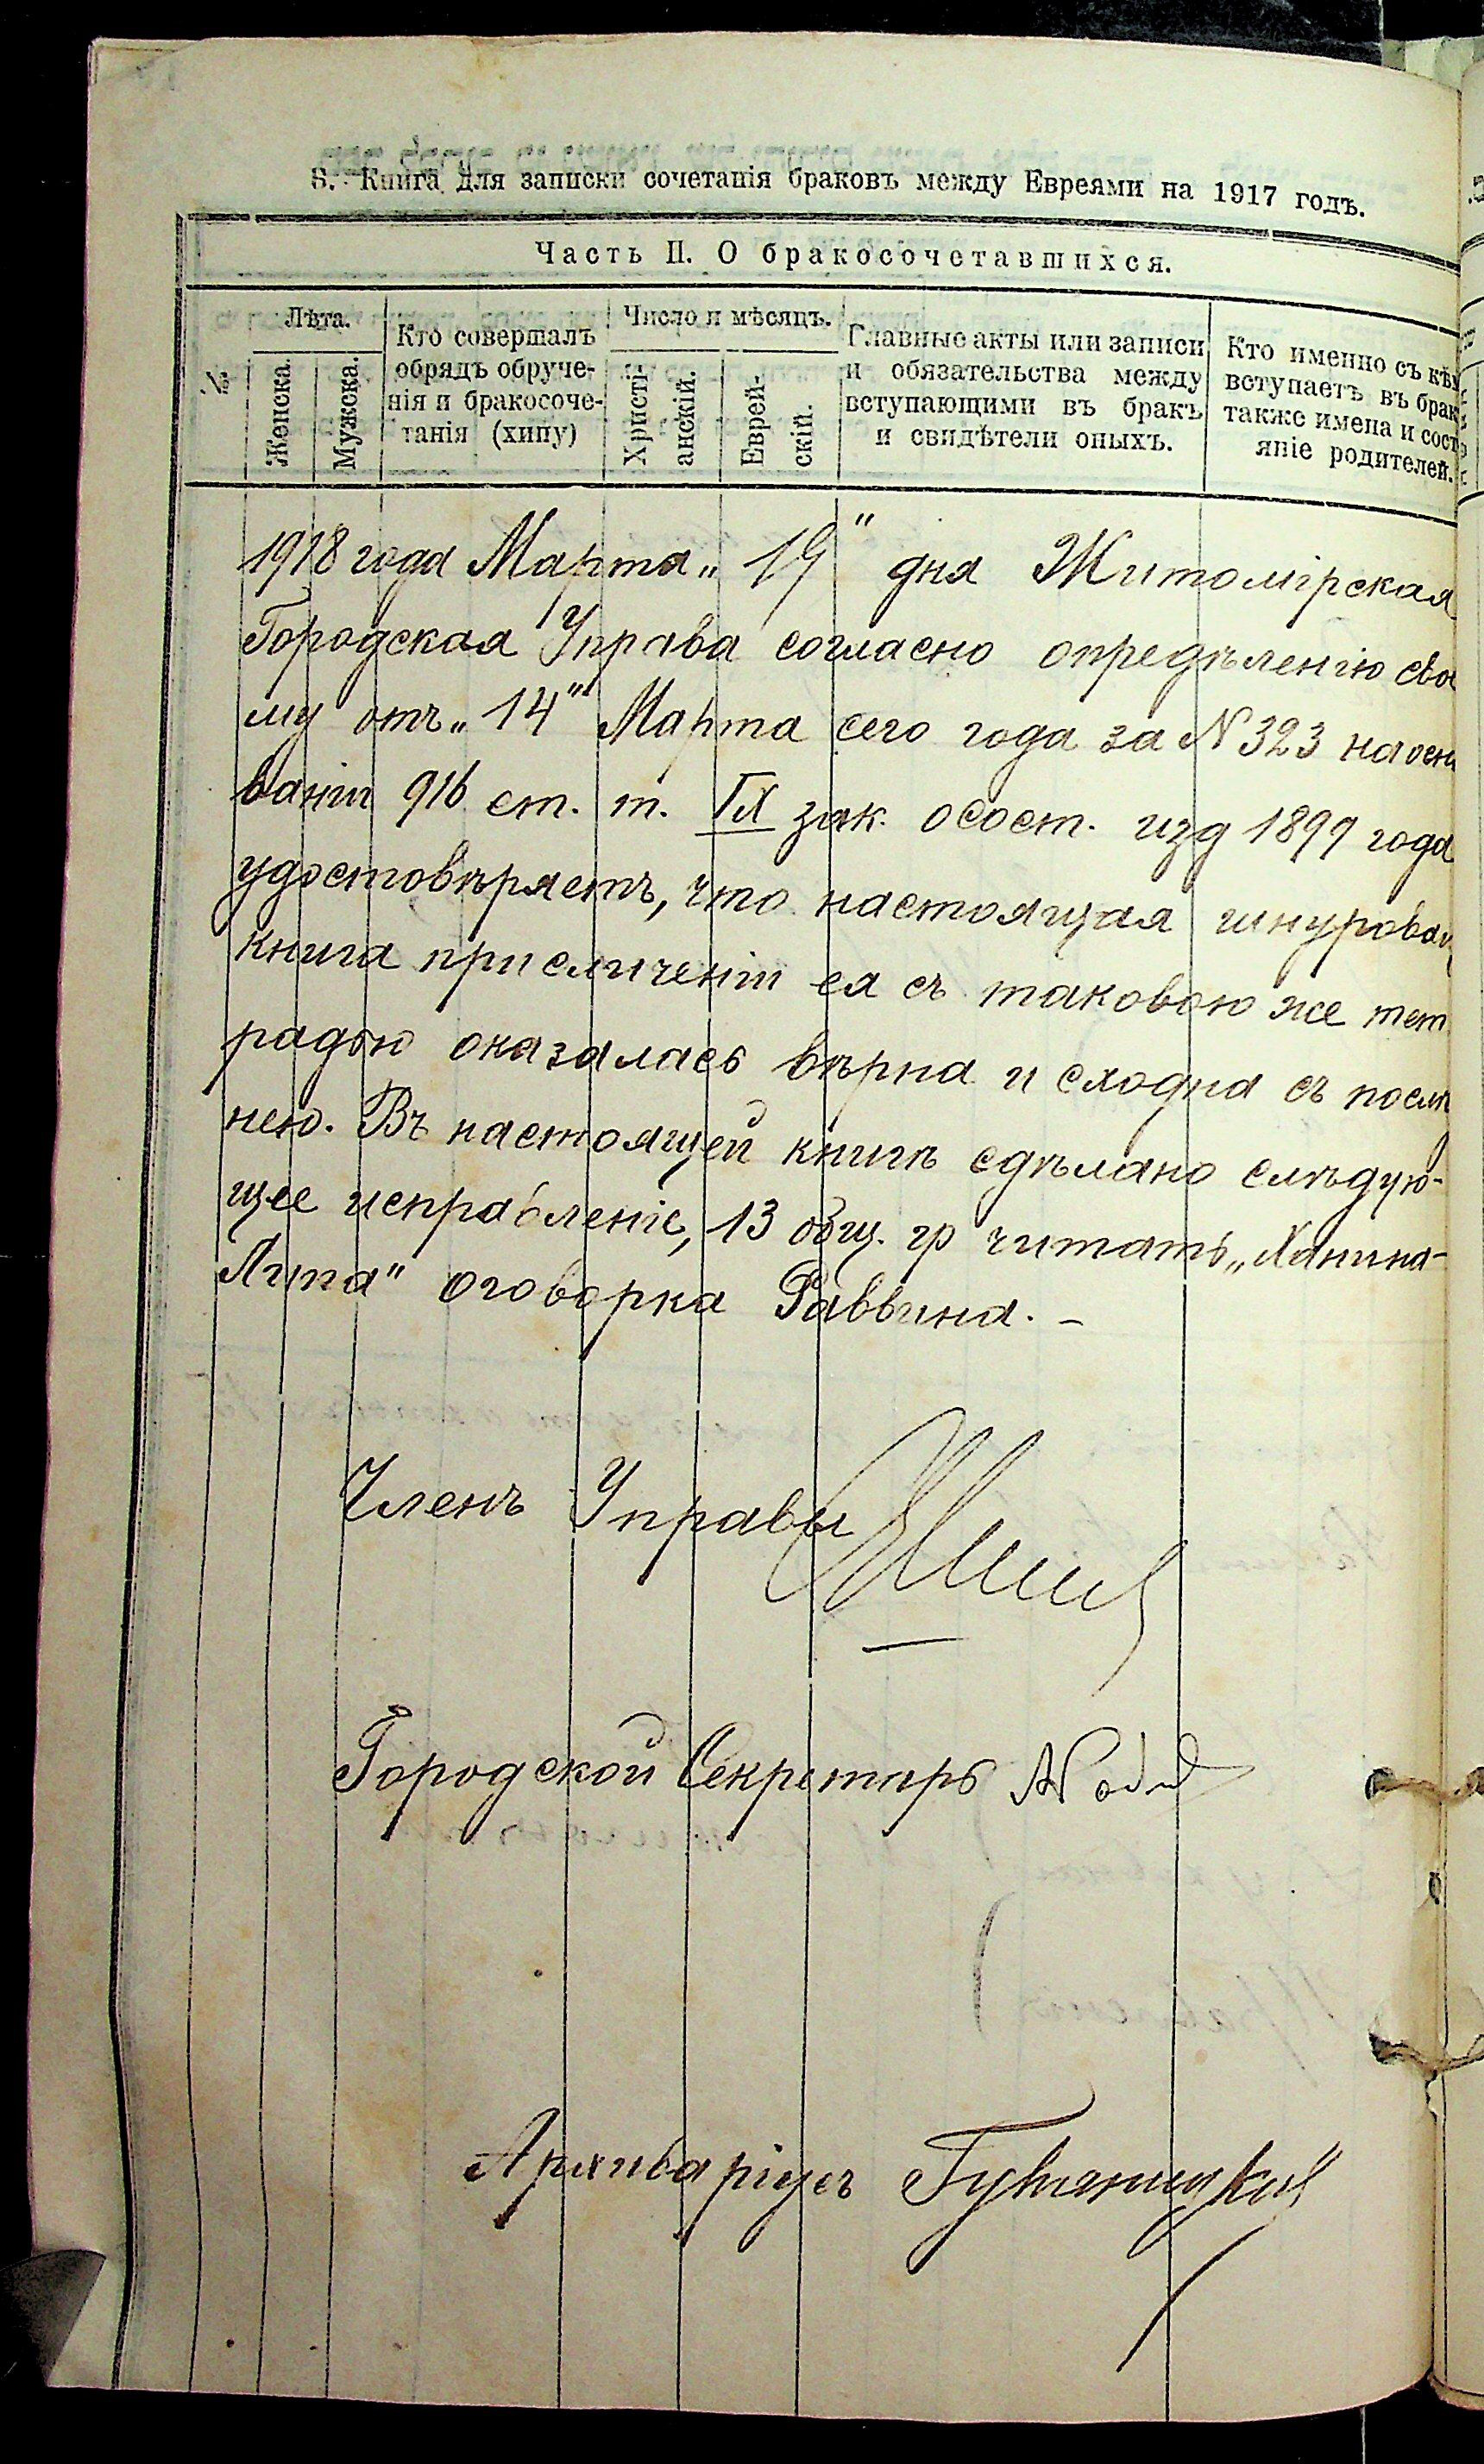 8. Книга для записки сочетанія браковъ между Евреями на 1917 годъ.
Часть II. О бракосочетавшихся.
№
Лѣта.
Женска.
Мужска.
Кто совершалъ
обрядъ обруче-
нія и бракосоче-
танія (хипу)
Число и мѣсяцъ.
Христі-
анскій.
Еврей-
скій.
Главные акты или записи
и обязательства между
вступающими въ бракъ
и свидѣтели оныхъ.
Кто именно съ кѣм
вступаетъ въ брак
также имена и сост
яніе родителей.
1918 года Марта „ 19 " дня Житомірская
Городская Управа согласно опредѣленію сво
му отъ „ 14 " Марта сего года за N 323 на осн
ваніи 916 ст. т. IX зак. о сост. изд 1899 года
удостовѣряетъ, что настоящая шнурован
книга при сличеніи ея съ таковою же тет
радью оказалась вѣрна и сходна съ послѣ
нею. Въ настоящей книгѣ сдѣлано слѣдую-
щее исправленіе, 13 общ. гр читать „Ханина-
Липа" оговорка Раввина. –
Членъ Управы
Городской Секретарь
Архиваріусъ